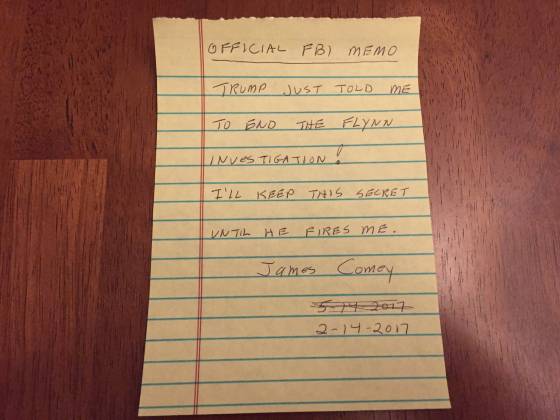 OFFICIAL FBI MEMO
TRUMP JUST TOLD ME
TO END THE FLYNN
INVESTIGATION!
I'LL KEEP THIS SECRET
UNTIL HE FIRES ME.
James Comey
5-14-2017
2-14-2017